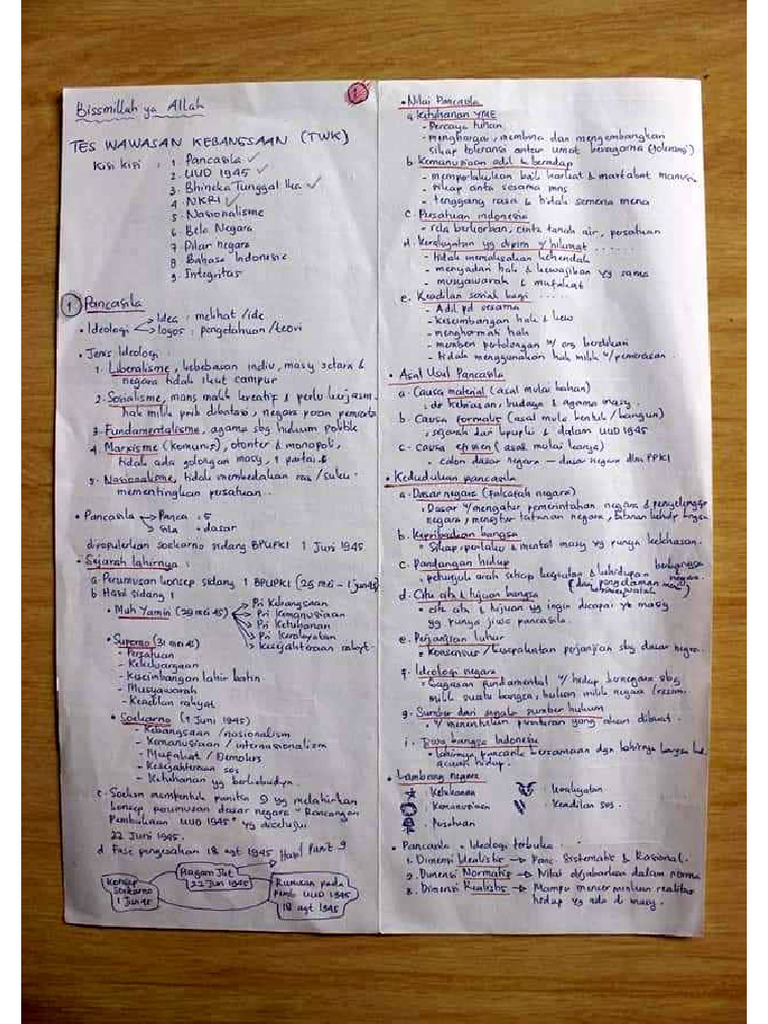 Bissmillah ya Allah
1
TES WAWASAN KEBANGSAAN (TWK)
Kisi kisi : 1. Pancasila ✓
2. UUD 1945 ✓
3. Bhineka Tunggal Ika ✓
4. NKRI ✓
5. Nasionalisme
6. Bela Negara
7. Pilar negara
8. Bahasa Indonesia
9. Integritas
1 Pancasila
• Ideologi
Idea : melihat /ide
logos : pengetahuan/teori
• Jenis Ideologi :
1. Liberalisme, kebebasan indiv, masy setara &
negara tidak ikut campur
2. Sosialisme, mans makh kreatif & perlu kerjasm
hak milik prib dibatasi, negara peran pencipta
3. Fundamentalisme, agama sbg hukum politik
4. Marxisme (komunis), otoriter & monopoli,
tidak ada golongan masy, 1 partai
5. Nasionalisme, tidak membedakan ras/suku.
mementingkan persatuan.
• Pancasila
Panca : 5
Sila : dasar
dipopulerkan soekarno sidang BPUPKI 1 Juni 1945
• Sejarah lahirnya :
a. Perumusan konsep sidang 1 BPUPKI (29 mei - 1 jun 45)
b. Hasil sidang 1
• Muh Yamin (29 mei 45)
Pri Kebangsaan
Pri Kemanusiaan
Pri Ketuhanan
Pri Kerakyatan
Kesejahteraan rakyat
• Supomo (31 mei 45)
- Persatuan
- Kekeluargaan
- Keseimbangan lahir batin
- Musyawarah
- Keadilan rakyat
• Soekarno (1 Juni 1945)
- Kebangsaan /nasionalism
- Kemanusiaan / internasionalism
- Mufakat / Demokrs
- Kesejahteraan sos
- Ketuhanan yg berkebudyn.
c. Soekrn membentuk panitia 9 yg melahirkan
konsep perumusan dasar negara "Rancangan
Pembukaan UUD 1945" yg disetujui
22 Juni 1945.
d. Fase pengesahan 18 agt 1945
Hasil Panit 9
Konsep
Soekarno
1 Jun 45
Piagam Jkt
22 Jun 1945
Rumusan pada
pemb UUD 1945
18 agt 1945
• Nilai Pancasila
a. Ketuhanan YME
- Percaya tuhan
- menghargai, membina dan mengembangkan
sikap toleransi antar umat beragama (toleransi)
b. Kemanusiaan adil & beradap
- memperlakukan baik harkat & martabat manusia
- sikap anta sesama mns
- tenggang rasa & tidak semena mena
c. Persatuan indonesia
- rela berkorban, cinta tanah air, persatuan
d. Kerakyatan yg dipim o/ hikmat .....
- tidak memaksakan kehendak
- menyadari hak & kewajiban yg sama
- musyawarah & mufakat
e. Keadilan sosial bagi .....
- Adil pd sesama
- keseimbangan hak & kew
- menghormati hak
- memberi pertolongan u/ org berdikari
- tidak menggunakan hak milik u/ pemerasan.
• Asal Usul Pancasila
a. Causa material (asal mula bahan)
dr kebiasan, budaya & agama masy.
b. Causa formalis (asal mula bentuk /bangun)
sejarah dar & dalam UUD 1945
c. Causa efisien (asal mula karya)
- calon dasar negara - dasar negara dlm PPKI
• Kedudukan pancasila
a. Dasar negara (falsafah negara)
• Dasar u/mengatur pemerintahan negara & penyelenggr
negara, mengatur tatanan negara,
b. Kepribadian bangsa
• sikap, perilaku & mental masy yg punya kekhasan.
c. Pandangan hidup
• petunjuk arah setiap kegiatan & kehidupan berbangsa
negara.
d. Cita cita & tujuan bangsa
• cita cita & tujuan yg ingin dicapai yk masy
yg punya jiwa pancasila.
e. Perjanjian luhur
• Konsensus / kesepakatan perjanjian sbg dasar negara.
f. Ideologi negara
• Gagasan fundamental u/ hidup bernegara sbg
milik suatu bangsa, bukan milik negara/rezim.
g. Sumber dari segala sumber hukum
• u/ menentukan peraturan yang akan dibuat.
i. Jiwa bangsa Indonesia
• lahirnya pancasila bersamaan dgn lahirnya bangsa
acuan hidup.
• Lambang negara
: Ketuhanan
: Kemanusiaan
: Persatuan
: Kerakyatan
: Keadilan sos.
• Pancasila • Ideologi terbuka :
1. Dimensi Idealistis → Panc. Sistematis & Rasional.
2. Dimensi Normatif → Nilai dijabarkan dalam norma
3. Dimensi Realistis → Mampu mencerminkan realitas
hidup yg ada di masy.